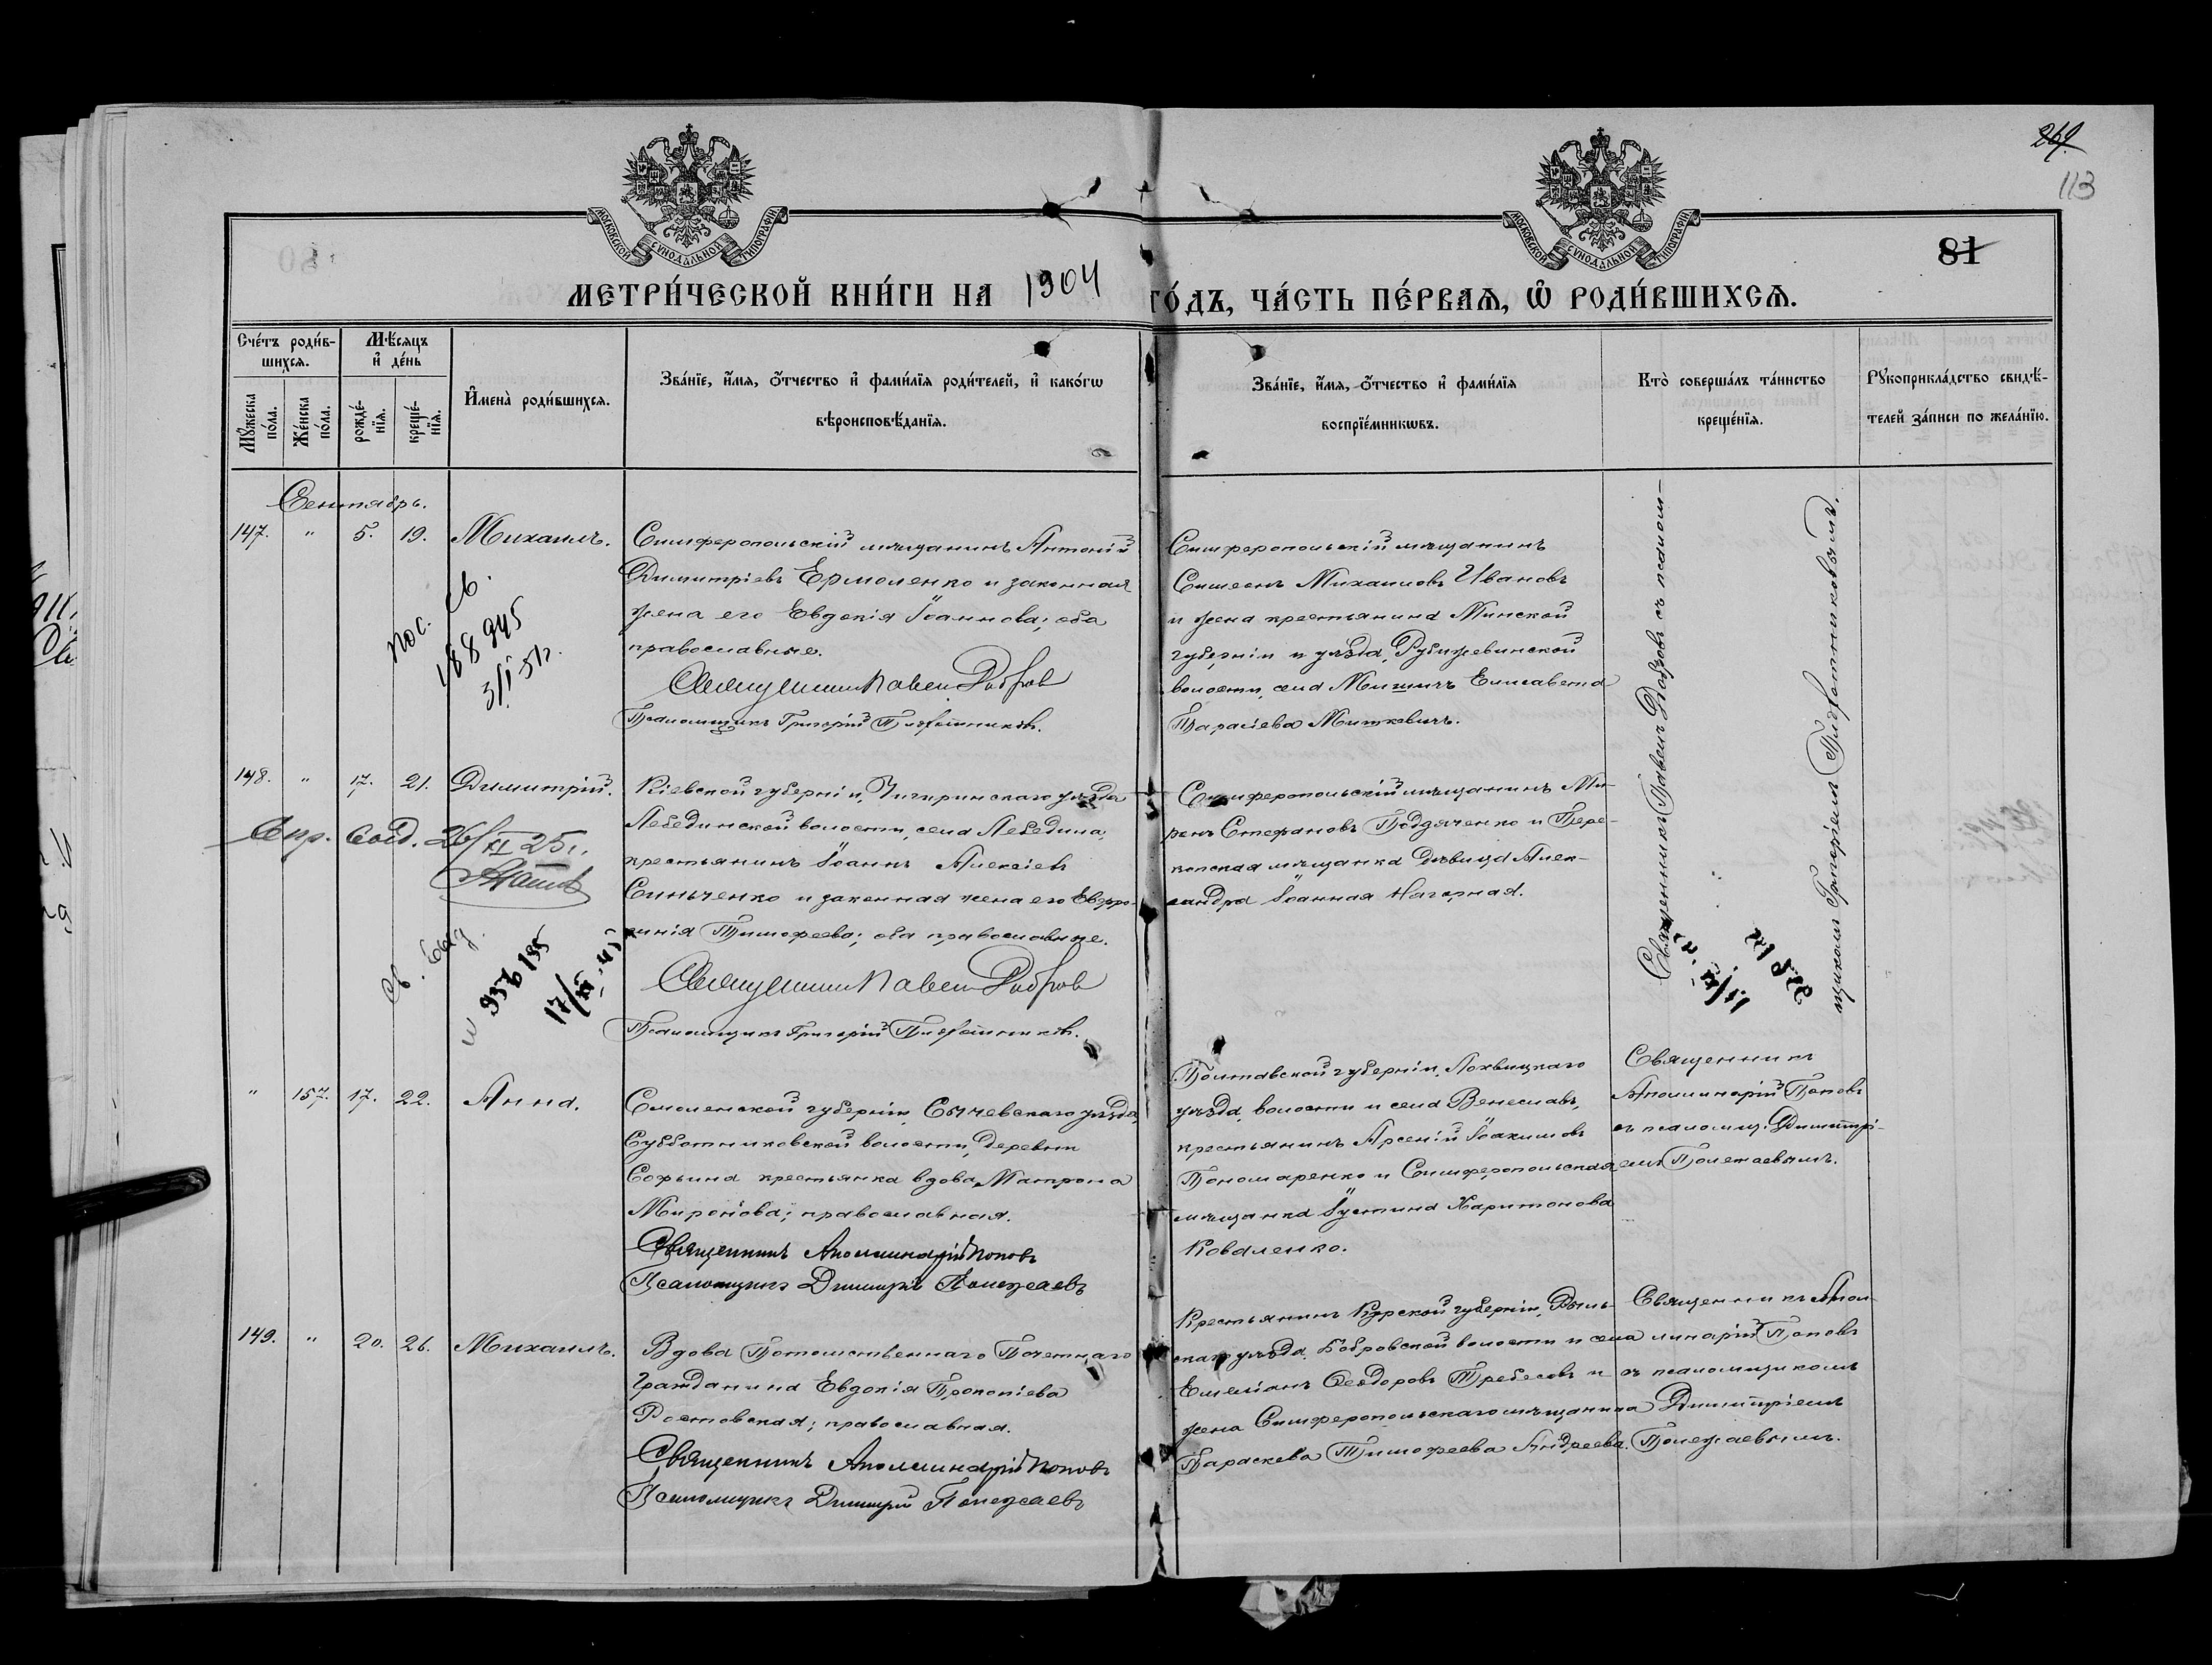 269.
113
81
МОСКОВСКОЙ СѴНОДАЛЬНОЙ ТИПОГРАФІИ
МОСКОВСКОЙ СѴНОДАЛЬНОЙ ТИПОГРАФІИ
МЕТРИ́ЧЕСКОЙ КНИ́ГИ НА 1904 ГО́ДЪ, ЧА́СТЬ ПЕ́РВАѦ, Ѽ РОДИ́ВШИХСѦ.
Сче́тъ роди́в-
шихсѧ.
Мꙋ́жеска по́ла.
Же́нска по́ла.
Мѣ́сяцъ
и҆ де́нь
рожде́-
нїѧ.
креще́-
нїѧ.
И҆мена̀ роди́вшихсѧ.
Зва́нїе, и҆́мѧ, ѻ҆́тчество и҆ фами́лїѧ роди́телей, и҆ како́гѡ
вѣроисповѣ́данїѧ.
Зва́нїе, и҆́мѧ, ѻ҆́тчество и҆ фами́лїѧ
воспрїе́мникѡвъ.
Кто̀ соверша́лъ та́инство
креще́нїѧ.
Рꙋкоприкла́дство свидѣ́-
телей за́писи по жела́нїю.
Сентябрь.
147. " 5. 19. Михаилъ.
Симферопольскій мѣщанинъ Антоній
Димитріевъ Ермоленко и законная
жена его Евдокія Іоаннова; оба
православные.
Священникъ Павелъ Добровъ
Псаломщикъ Григорій
Симферопольскій мѣщанинъ
Симеонъ Михаиловъ Ивановъ
и жена крестьянина Минской
губерніи и уѣзда, Рубижевинской
волости, села Елисавета
Тарасіева Миткевичъ.
Священникъ Павелъ Добровъ съ псалом-
щикомъ Григоріемъ
пос. св.
188945
3/I 51г.
148. " 17. 21. Димитрій.
Кіевской губерніи, Чигиринскаго уѣзда
Лебединской волости, села Лебедина,
крестьянинъ Іоаннъ Алексіевъ
Синьченко и законная жена его Евфро-
синія Тимофеева; оба православные.
Священникъ Павелъ Добровъ
Псаломщикъ Григорій
Симферопольскій мѣщанинъ Ми-
ронъ Стефановъ Поддяченко и Пере-
копская мѣщанка дѣвица Алек-
сандра Іоанная Нагорная.
26/XI 25г.
" 157. 17. 22. Анна.
Смоленской губерніи, Сычевскаго уѣзда,
Субботниковской волости, деревни
Софьина крестьянка вдова Матрона
Миронова; православная.
Священникъ Аполлинарій Поповъ
Псаломщикъ Димитрій Полежаевъ
Полтавской губерніи, Лохвицкаго
уѣзда, волости и села Венеславъ,
крестьянинъ Арсеній Іоакимовъ
Пономаренко и Симферопольская
мѣщанка Іустина Харитонова
Коваленко.
Священникъ
Аполлинарій Поповъ
съ псаломщ. Димитрі-
емъ Полежаевымъ.
149. " 20. 26. Михаилъ.
Вдова Потомственнаго Почетнаго
Гражданина Евдокія Прокопіева
Ростовская; православная.
Священникъ Аполлинарій Поповъ
Псаломщикъ Димитрій Полежаевъ
Крестьянинъ Курской губерніи, Рыль-
скаго уѣзда, Бобровской волости и села
Емеліанъ Феодоровъ и
жена Симферопольскаго мѣщанина
Параскева Тимофеева Андреева.
Священникъ Апол-
линарій Поповъ
съ псаломщикомъ
Димитріемъ
Полежаевымъ.